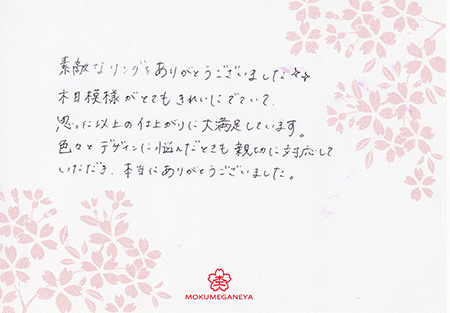 素敵なリングをありがとうございました☆☆
木目模様がとてもきれいにでていて、
思った以上の仕上がりに大満足しています。
色々とデザインに悩んだときも親切に対応して
いただき、本当にありがとうございました。
MOKUMEGANEYA